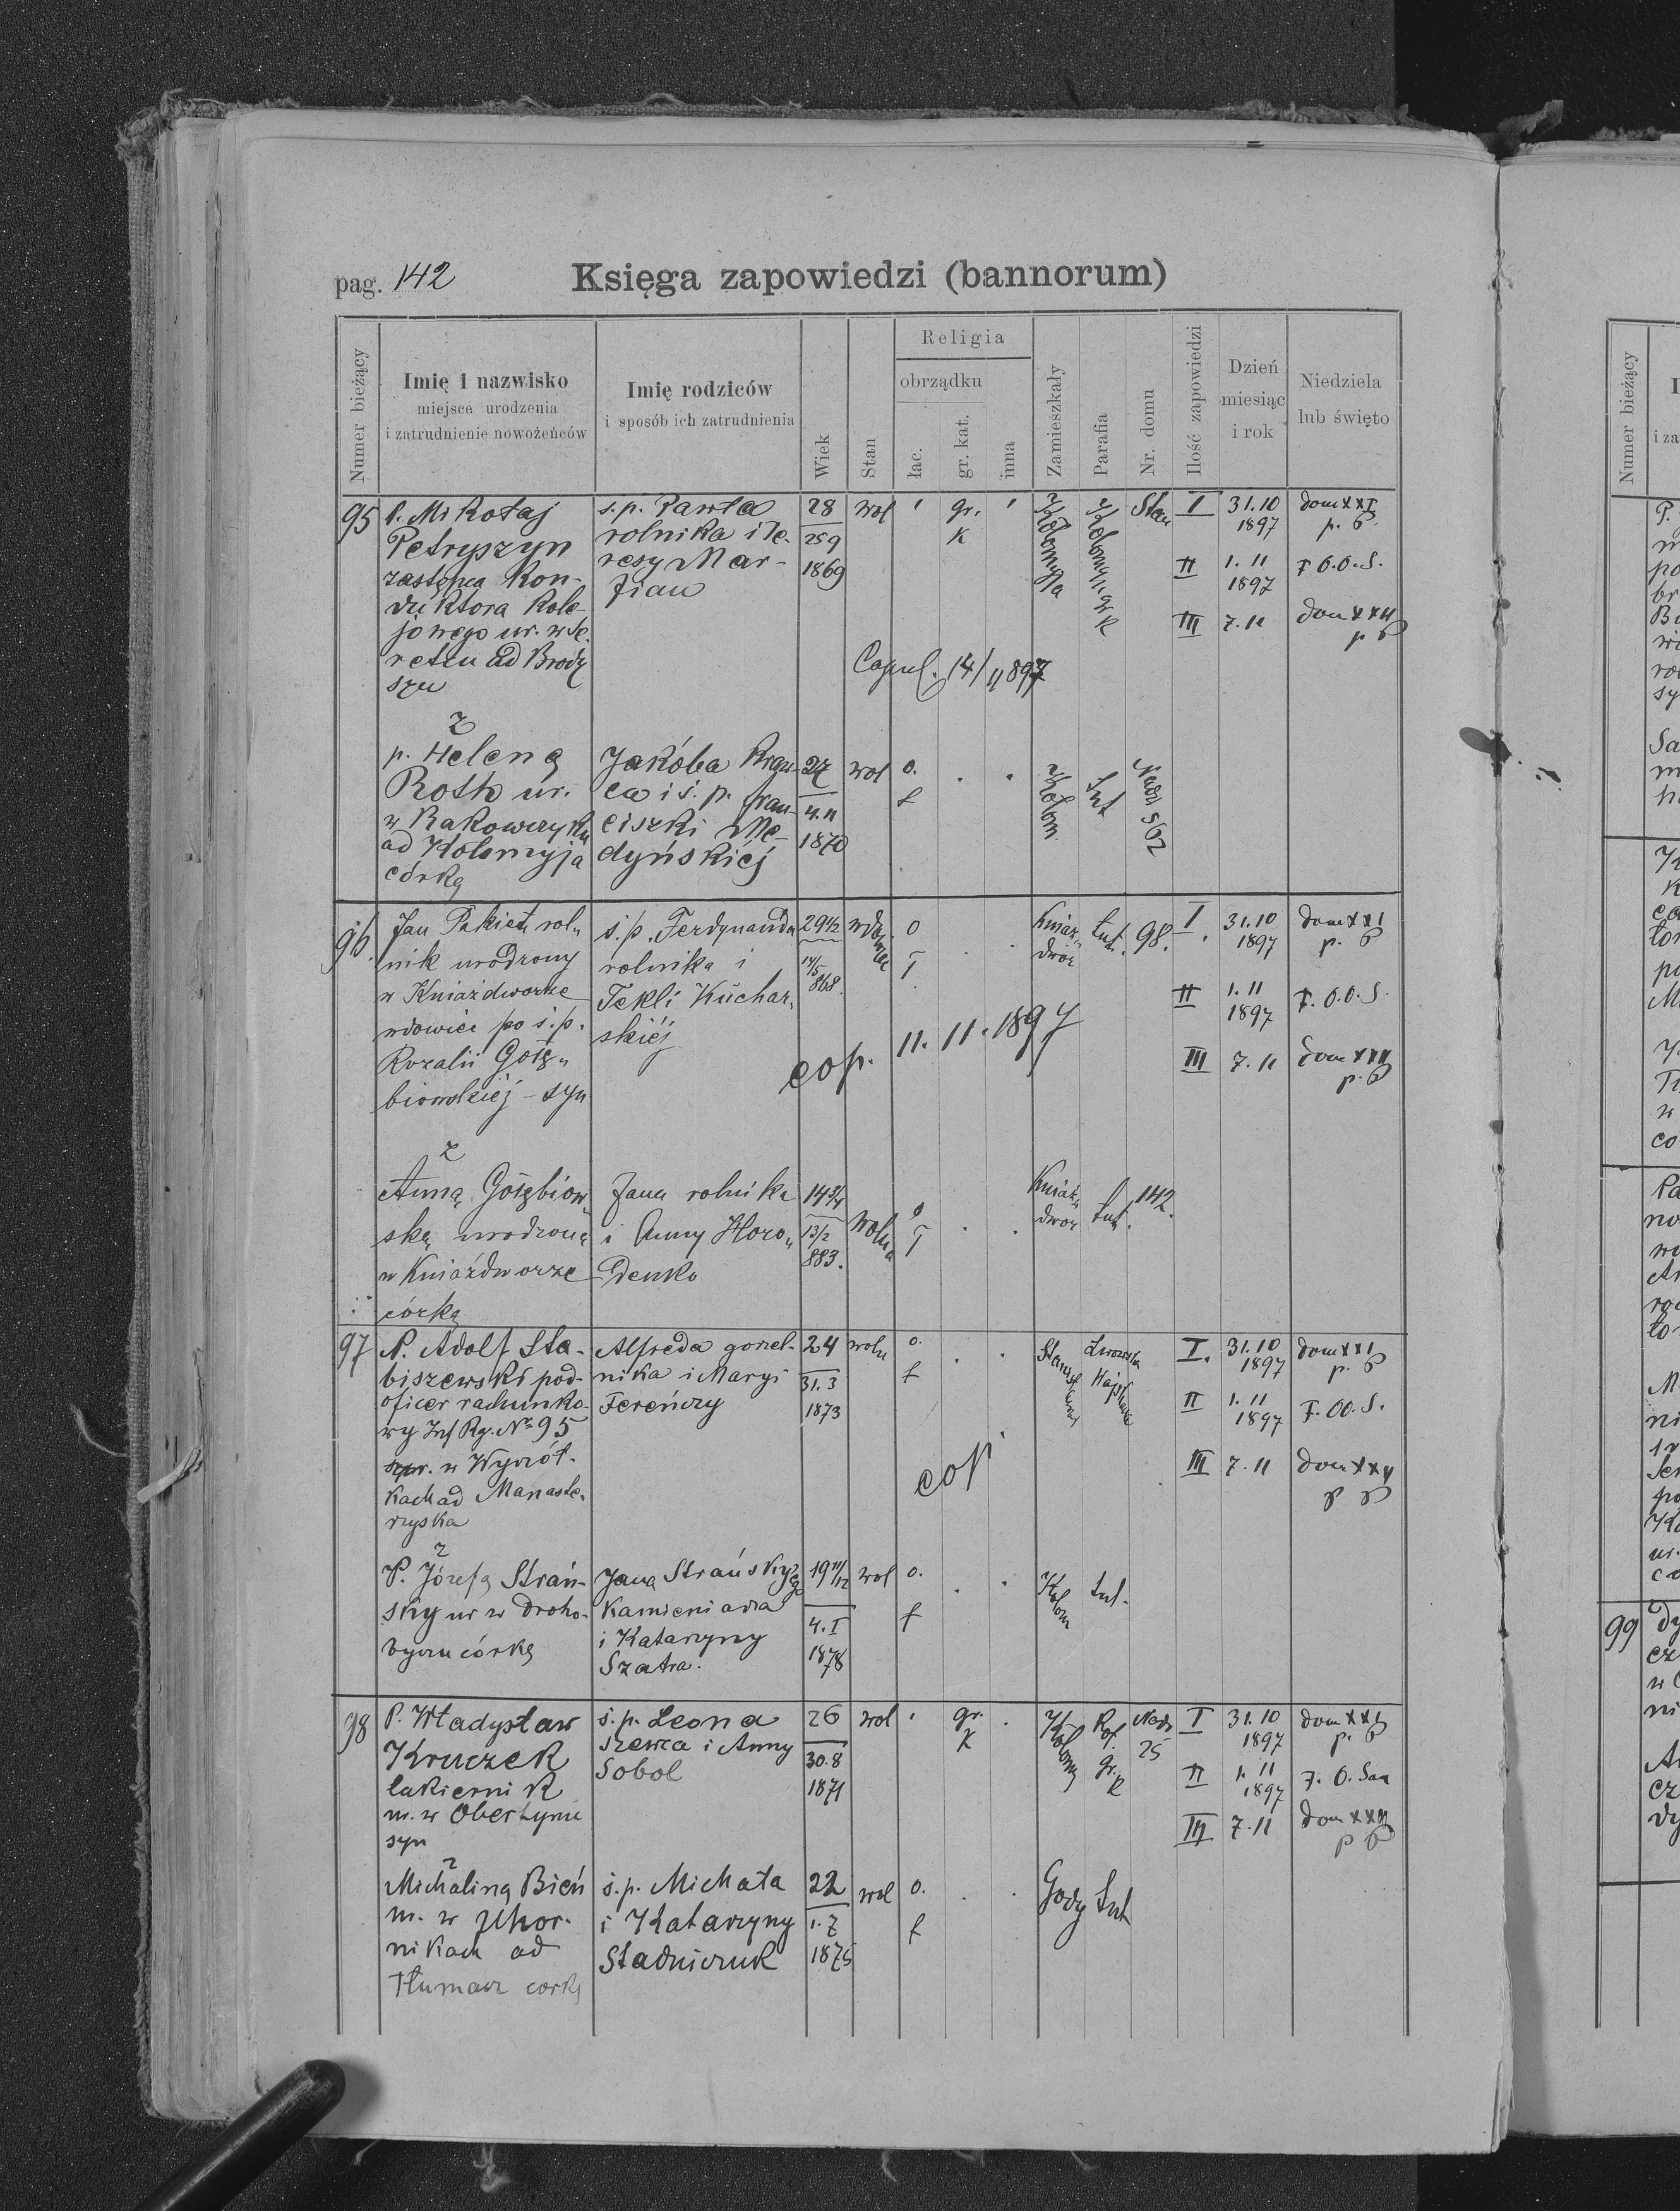 pag. 142 Księga zapowiedzi (bannorum)
Numer bieżący
Imię i nazwisko
miejsce urodzenia
i zatrudnienie nowożeńców
Imię rodziców
i sposób ich zatrudnienia
Wiek
Stan
Religia
obrządku
łac.
gr. kat.
inna
Zamieszkały
Parafia
Nr. domu
Ilość zapowiedzi
Dzień
miesiąc
i rok
Niedziela
lub święto
95
P. Mikołaj
Petryszyn
zastępca kon-
duktora kole-
jowego ur. w Se-
retcu ad Brody
syn
ś.p. Pawła
rolnika i Te-
resy Mar-
28
25 9
1869
wol
gr.
k
Kołomyja
Kołomyja gr k
I 31.10
1897
dom XXI
p. P.
II 1. 11
1897
F. O. O. S.
III 7. 11
dom XXII
p P
Copul. 14/11 897
z
p. Heleną
Roth ur.
w Rakowczyku
ad Kołomyja
córką
Jakóba kraw-
ca i ś. p. Fran-
ciszki Me-
dyńskiéj
27
4. 11
1870
wol
o.
ł
Kołom.
tut
Nadw 502
96.
Jan Pakiet rol-
nik urodzony
w Kniaźdworze
wdowiec po ś.p.
Rozalii Gołę-
biowskiéj - syn
ś.p. Ferdynanda
rolnika i
Tekli Kuchar-
skiéj
29 1/2
14/5
868.
wdowiec
o
ł
Kniaź-
dwor
tut.
98.
I. 31.10
1897
dom XXI
p. P
II 1. 11
1897
F. O. O. S.
III 7. 11
dom XXII
p. P
cop. 11. 11. 1897
z
Anną Gołębiow-
ską urodzoną
w Kniaźdworze
córką
Jana rolnika
i Anny Horo-
denko
14 3/4
13/2
883.
wolna
o
ł
Kniaź-
dwor
tut.
142.
97
P. Adolf Sta-
biszewski pod-
oficer rachunko-
wy Inf Rg. No 95
ur. w Wyczół-
kach ad Manaste-
rzyska
Alfreda gorzel-
nika i Maryi
Fereńczy
24
31. 3
1873
woln
o.
ł
Lwowska
I. 31.10
1897
dom XXI
p. P
II 1. 11
1897
F. OO. S.
III 7. 11
dom XXII
p P
cop.
z
P. Józefą Strań-
sky ur w Droho-
byczu córką
Jana Strańskyego
kamieniarza
i Katarzyny
Szatra.
19 11/12
4. I
1878
wol
o.
ł
Kołom
tut.
98
P. Władysław
Kruczek
lakiernik
ur. w Obertynie
syn
ś. p. Leona
szewca i Anny
Sobol
26
30. 8
1871
wol
gr.
k
Kołomy
Koł. gr. k
Nadw
25
I 31.10
1897
dom XXI
p. P
II 1. 11
1897
F. O. San
III 7. 11
dom XXII
p P
z
Michaliną Bień
ur. w
nikach ad
Tłumacz córką
ś. p. Michała
i Katarzyny
Stadniczuk
22
1. 7
1875
wol
o.
ł
Gody
tut
99